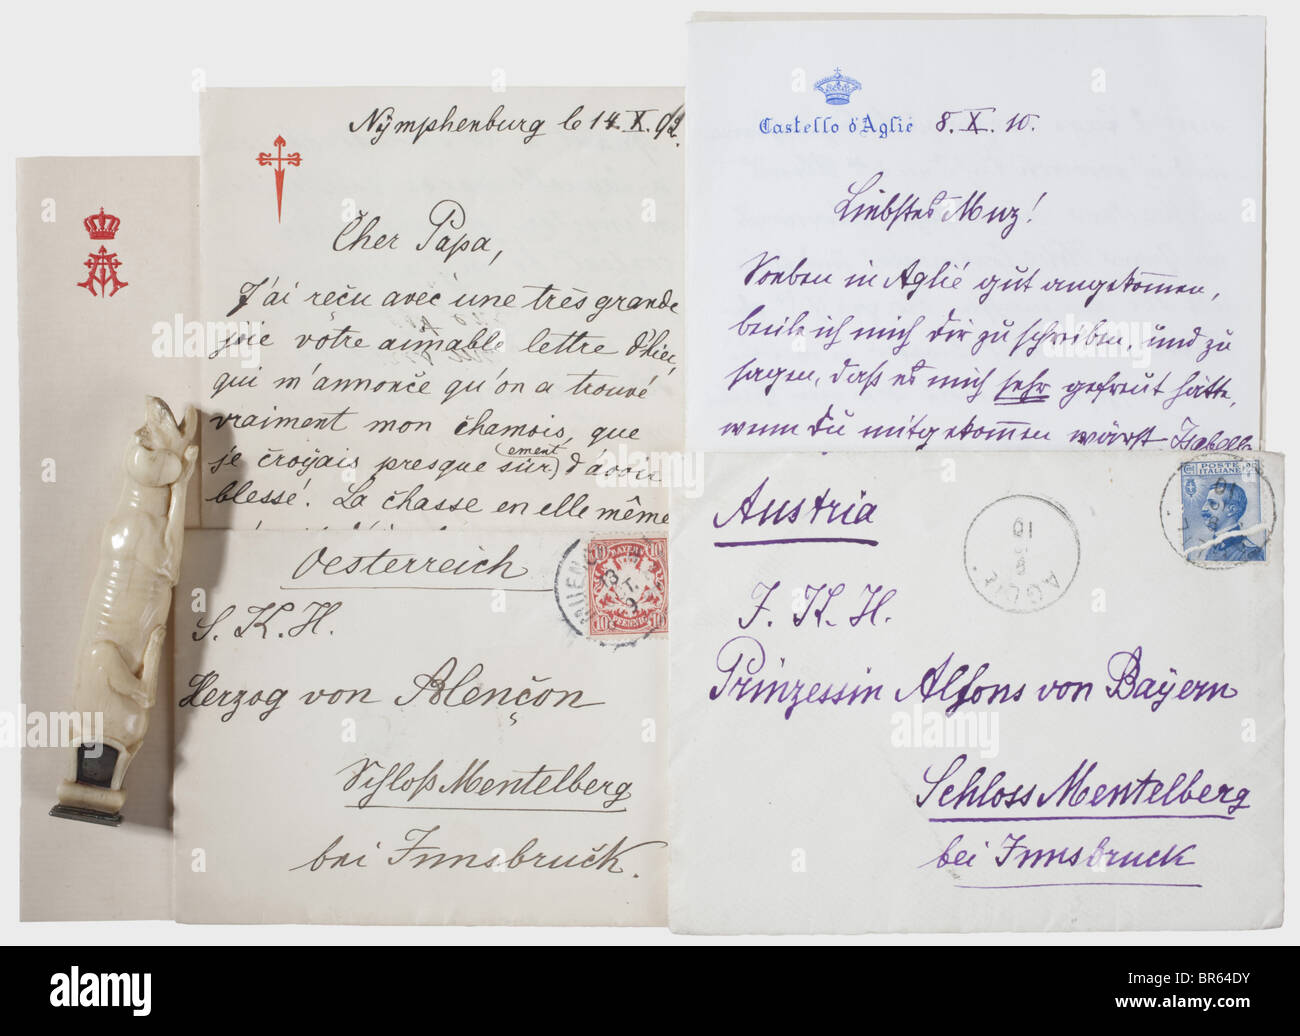 Nÿmphenburg le 14.X.02.
Cher Papa,
J'ai reçu avec une très grande
joie votre aimable lettre d'hier,
qui m'annonce qu'on a trouvé
vraiment mon chamois, que
je croÿais presque sûr(ement) d'avoir
blessé! La chasse en elle même
Castello d'Agliè 8.X.10.
Liebstes Muz!
Soeben in Aglié gut angekommen,
beeile ich mich Dir zu schreiben, und zu
sagen, daß es mich sehr gefreut hätte,
wenn Du mitgekommen wärst. Isabella
Oesterreich
S. K. H.
Herzog von Alençon
Schloß Mentelberg
bei Innsbruck.
BAYERN
10 10
10 PFENNIG 10
Austria
I. K. H.
Prinzessin Alfons von Baÿern
Schloss Mentelberg
bei Innsbruck
POSTE ITALIANE
AGLIÈ
alamy
Image ID: BR64DY
www.alamy.com